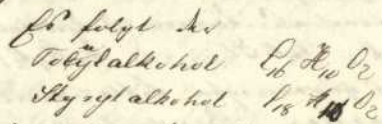 Es folgt der
Tolÿlalkohol C16 H10 O2
Styrylalkohol C18 H10 O2